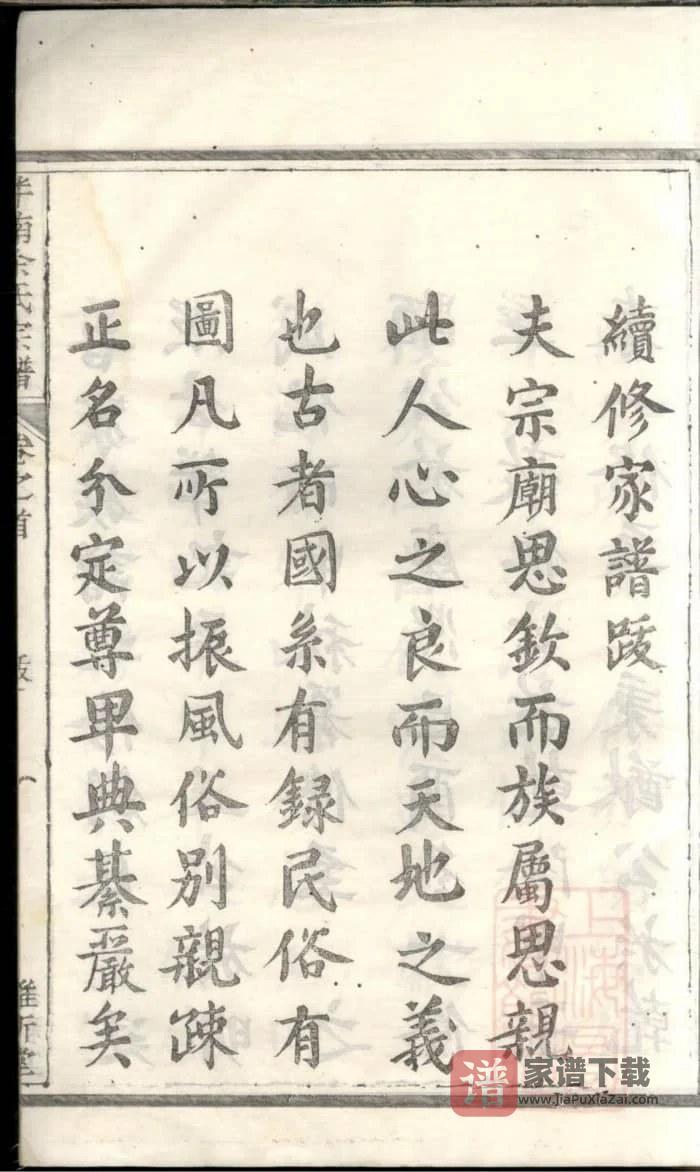 續修家譜跋
夫宗廟思欽而族屬思親
此人心之良而天地之義
也古者國系有録民俗有
圖凡所以振風俗別親疎
正名分定尊卑典綦嚴矣
南余氏宗譜
卷之首
跋
一
家谱下载
www.JiaPuXiaZai.com
谱